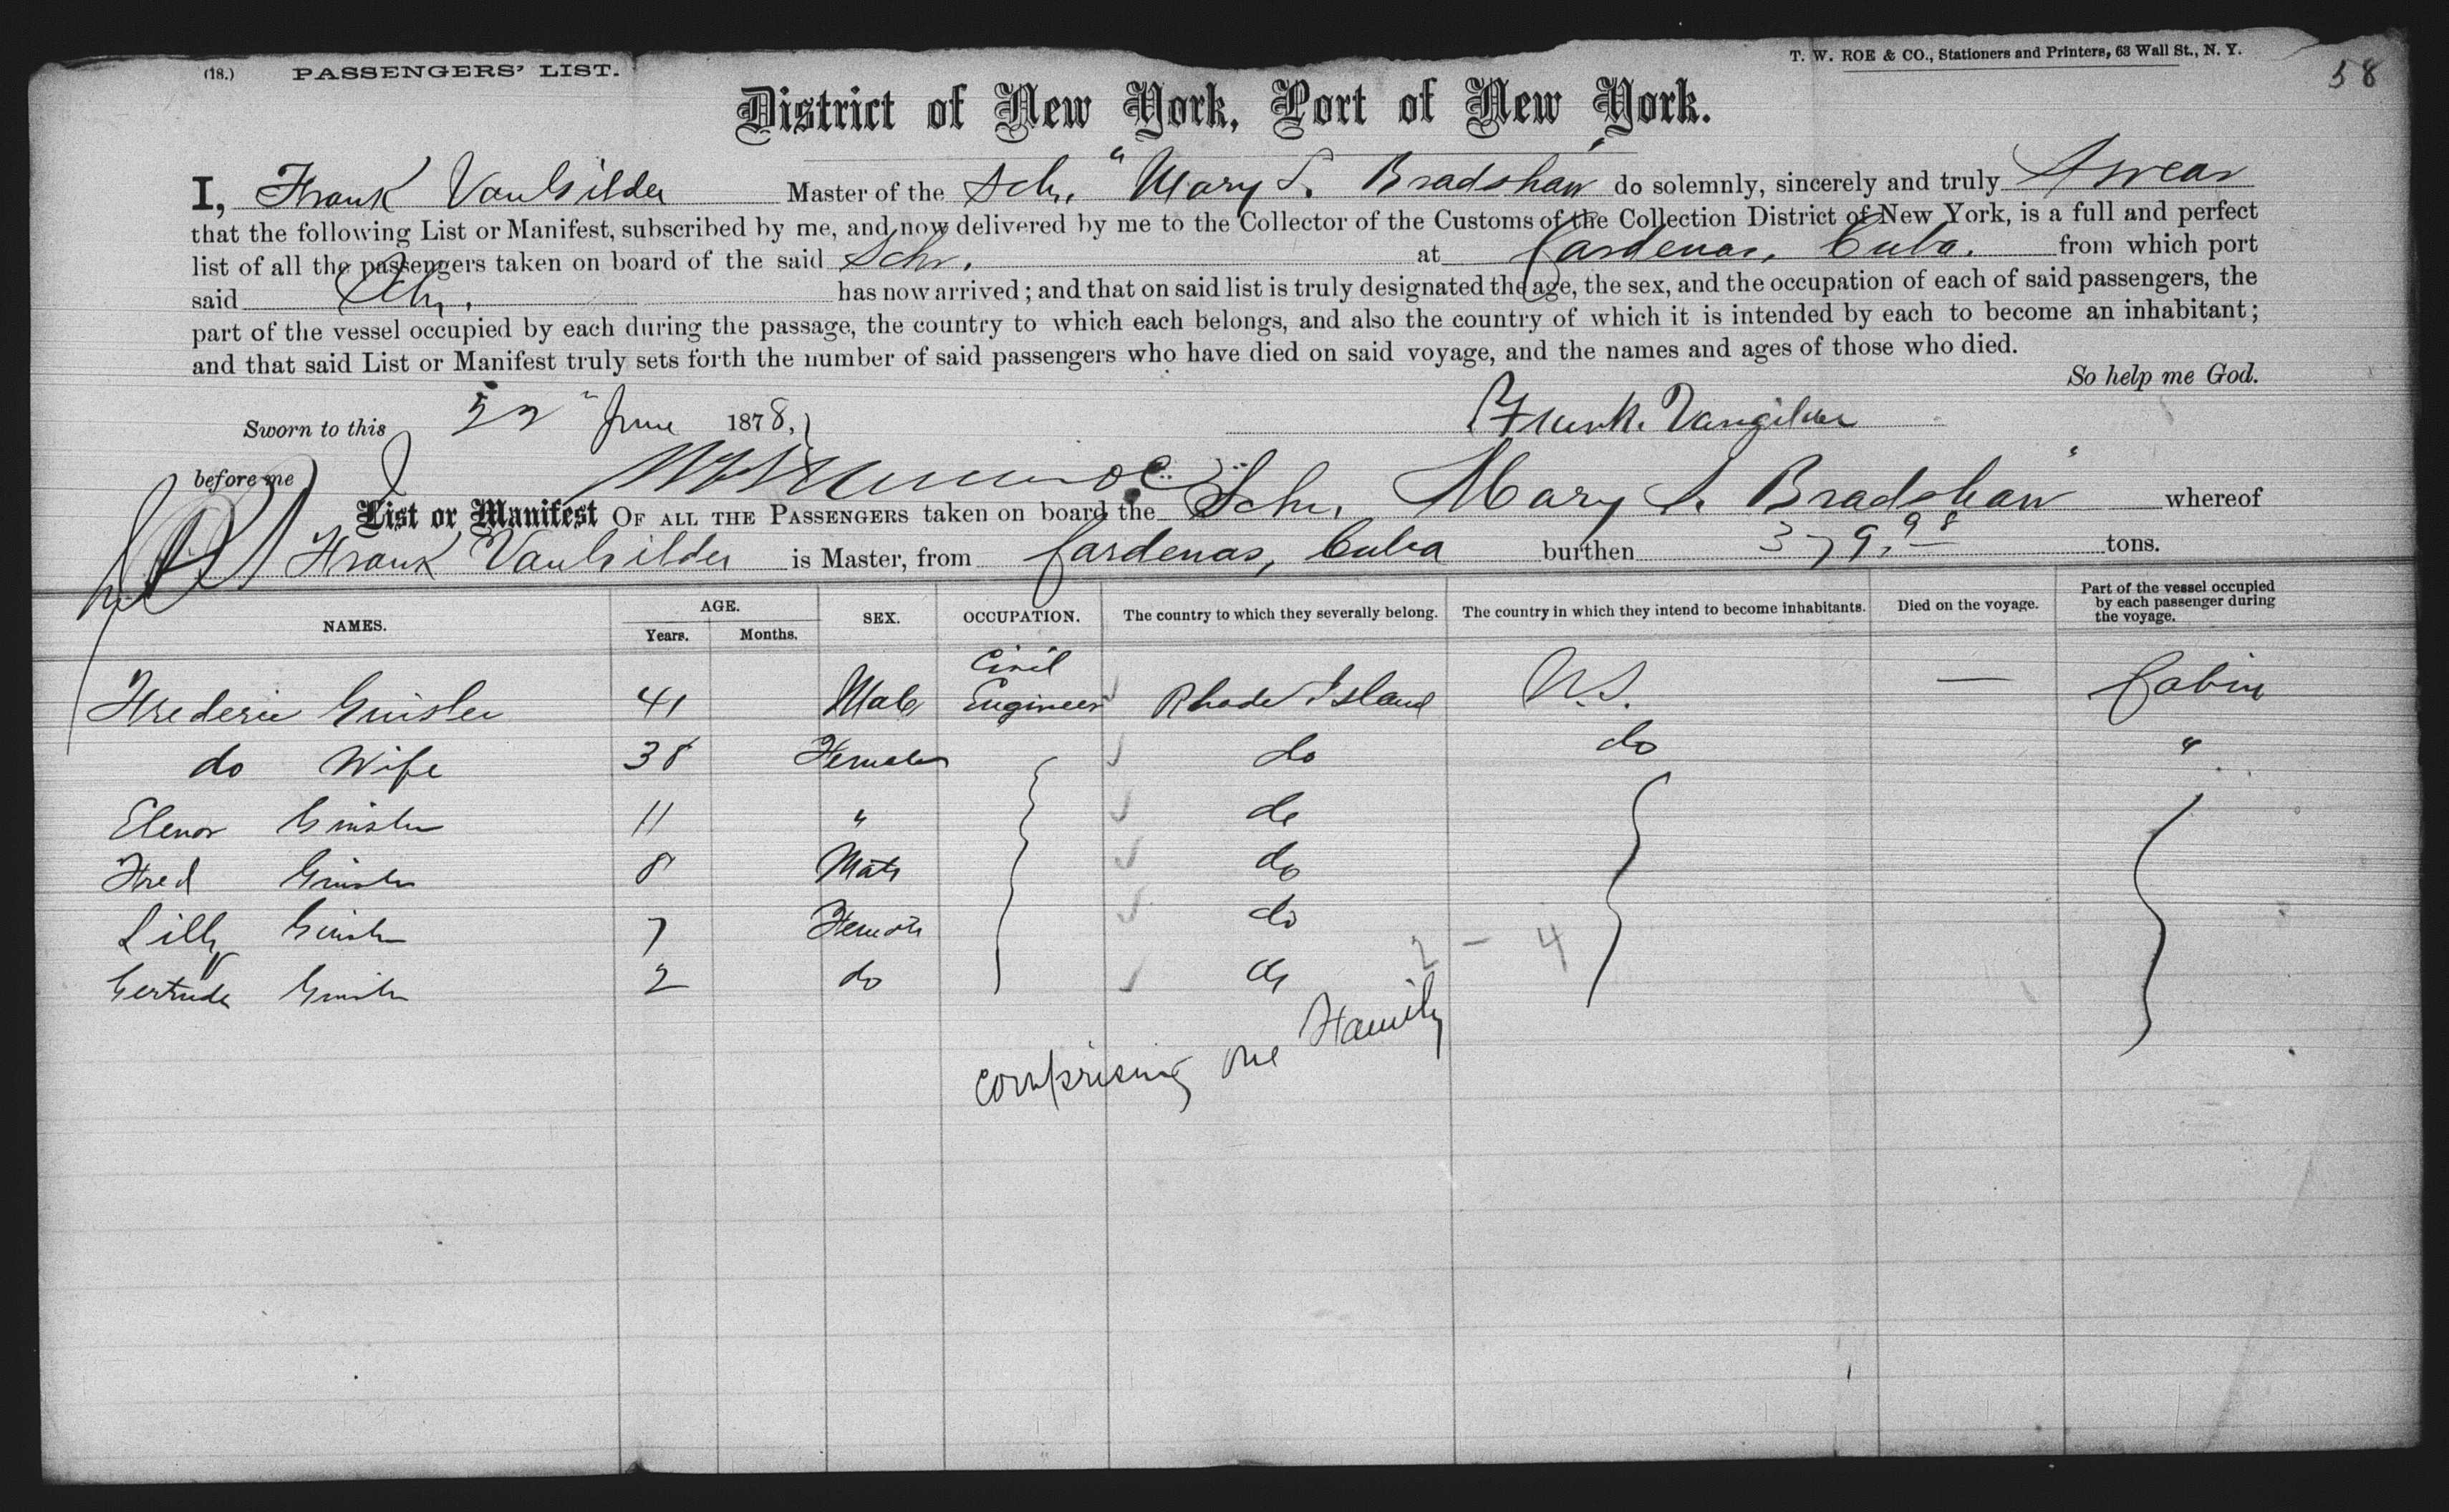 (18.) PASSENGERS' LIST.
T. W. ROE & CO., Stationers and Printers, 63 Wall St., N. Y.
58
District of New York, Port of New York.
I, Frank VanGilder Master of the Sch. "Mary S. Bradshaw" do solemnly, sincerely and truly Swear
that the following List or Manifest, subscribed by me, and now delivered by me to the Collector of the Customs of the Collection District of New York, is a full and perfect
list of all the passengers taken on board of the said Schr. at Cardenas, Cuba. from which port
said Schr. has now arrived; and that on said list is truly designated the age, the sex, and the occupation of each of said passengers, the
part of the vessel occupied by each during the passage, the country to which each belongs, and also the country of which it is intended by each to become an inhabitant;
and that said List or Manifest truly sets forth the number of said passengers who have died on said voyage, and the names and ages of those who died.
So help me God.
Sworn to this June 1878, Frank. Vangilder
before me
List or Manifest OF ALL THE PASSENGERS taken on board the Schr. Mary S. Bradshaw" whereof
Frank VanGilder is Master, from Cardenas, Cuba burthen 379.98 tons.
NAMES. AGE. Years. Months. SEX. OCCUPATION. The country to which they severally belong. The country in which they intend to become inhabitants. Died on the voyage. Part of the vessel occupied by each passenger during the voyage.
Frederic 41 Male Civil Engineer Rhode Island U.S. — Cabin
do Wife 38 Female do do "
Elenor 11 " do
Fred 8 Male do
Lilly 7 Female do
2 - 4
Gertrude 2 do do
comprising one Family